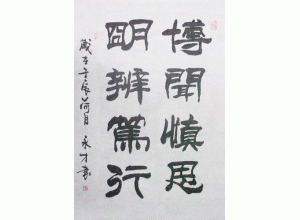 博聞慎思
明辨篤行
歲在壬辰荷月永才書